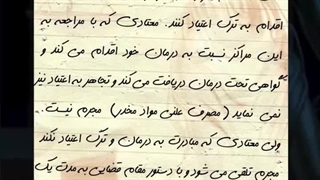 اقدام به ترک اعتیاد کنند. معتادی که با مراجعه به
این مراکز نسبت به درمان خود اقدام می کند و
گواهی تحت درمان دریافت می کند و تجاهر به اعتیاد نیز
نمی نماید (مصرف علنی مواد مخدر) مجرم نیست.
ولی معتادی که مبادرت به درمان و ترک اعتیاد نکند
مجرم تلقی می شود و با دستور مقام قضایی به مدت یک